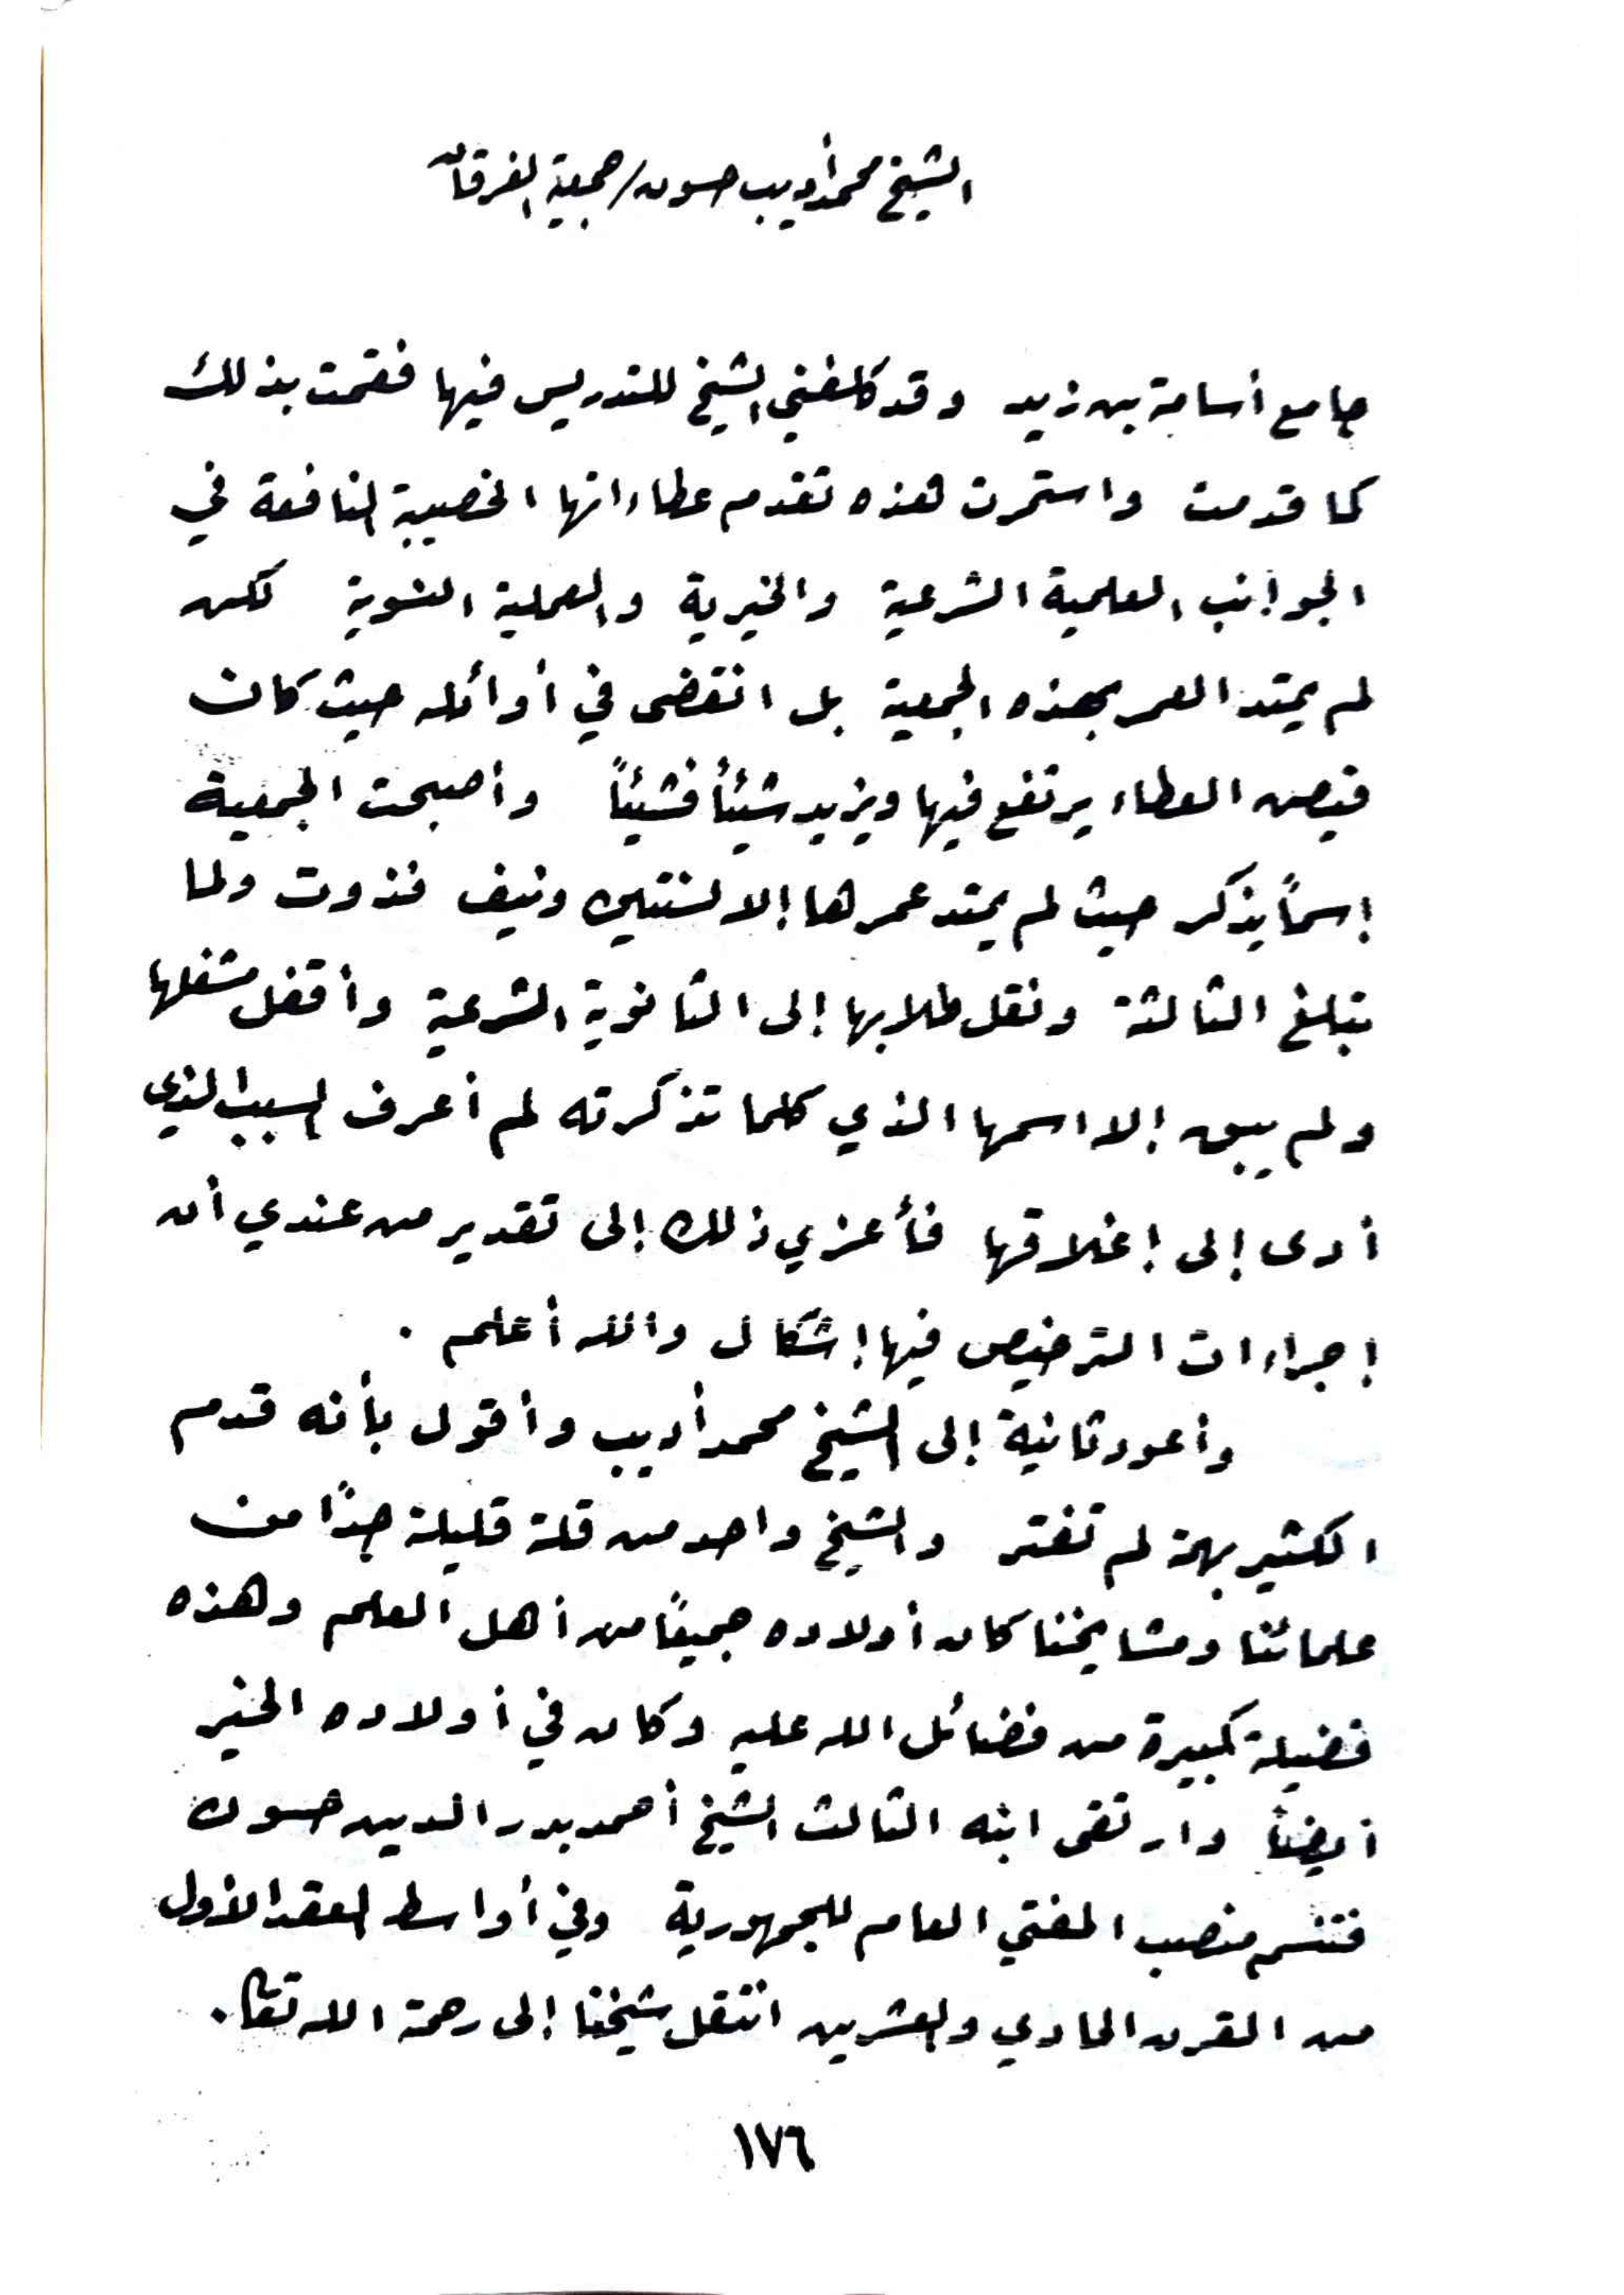 الشيخ محمد أديب حسون/جمعية الفرقان
جامع أسامة بن زيد وقد كلفني الشيخ للتدريس فيها فقمت بذلك
كما قدمت واستمرت هذه تقدم عطاءاتها الخصيبة النافعة في
الجوانب العلمية الشرعية والخيرية والعملية النسوية لكن
لم يمتد العمر بهذه الجمعية بل انقضى في أوائله حيث كان
فيض العطاء يرتفع فيها ويزيد شيئاً فشيئاً وأصبحت الجمعية
إسماً يذكر حيث لم يمتد عمرها إلا لسنتين ونيف فذوت ولما
تبلغ الثالثة ونقل طلابها إلى الثانوية الشرعية وأقفل مشغلها
ولم يبق إلا اسمها الذي كلما تذكرته لم أعرف السبب الذي
أدى إلى إغلاقها فأعزي ذلك إلى تقدير من عندي أن
إجراءات الترخيص فيها إشكال والله أعلم .
وأعود ثانية إلى الشيخ محمد أديب وأقول بأنه قدم
الكثير بهمة لم تفتر والشيخ واحد من قلة قليلة جداً من
علمائنا ومشايخنا كان أولاده جميعاً من أهل العلم وهذه
فضيلة كبيرة من فضائل الله عليه وكان في أولاده الخير
أيضاً وارتقى ابنه الثالث الشيخ أحمد بدر الدين حسون
فتسنم منصب المفتي العام للجمهورية وفي أواسط العقد الأول
من القرن الحادي والعشرين انتقل شيخنا إلى رحمة الله تعالى .
١٧٦